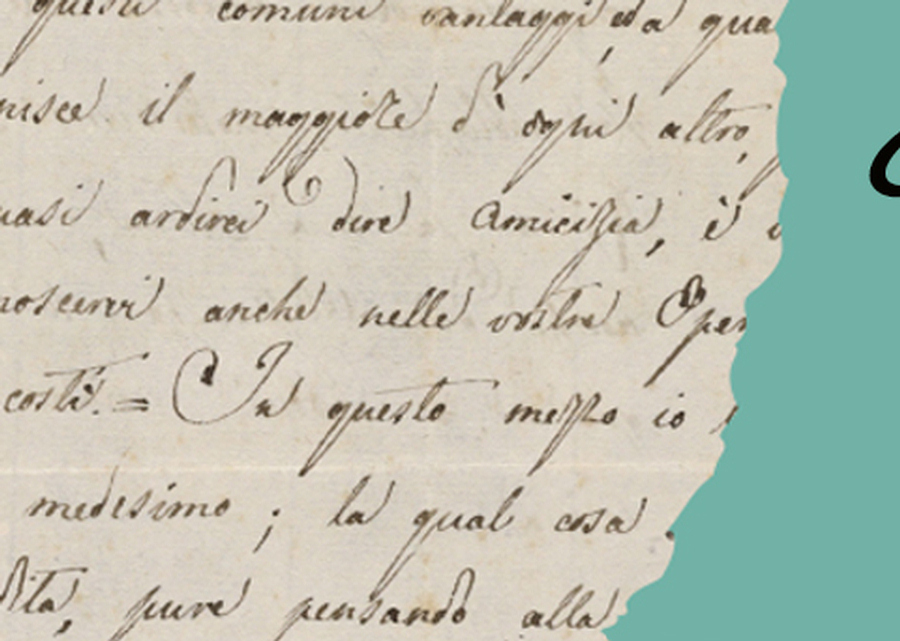 questi comuni vantaggi, ed a qua
nisce il maggiore d'ogni altro,
uasi ardirei dire Amicizia, è
noscervi anche nelle vostre Oper
costì. = In questo mezzo io
medesimo ; la qual cosa
dita, pure pensando alla